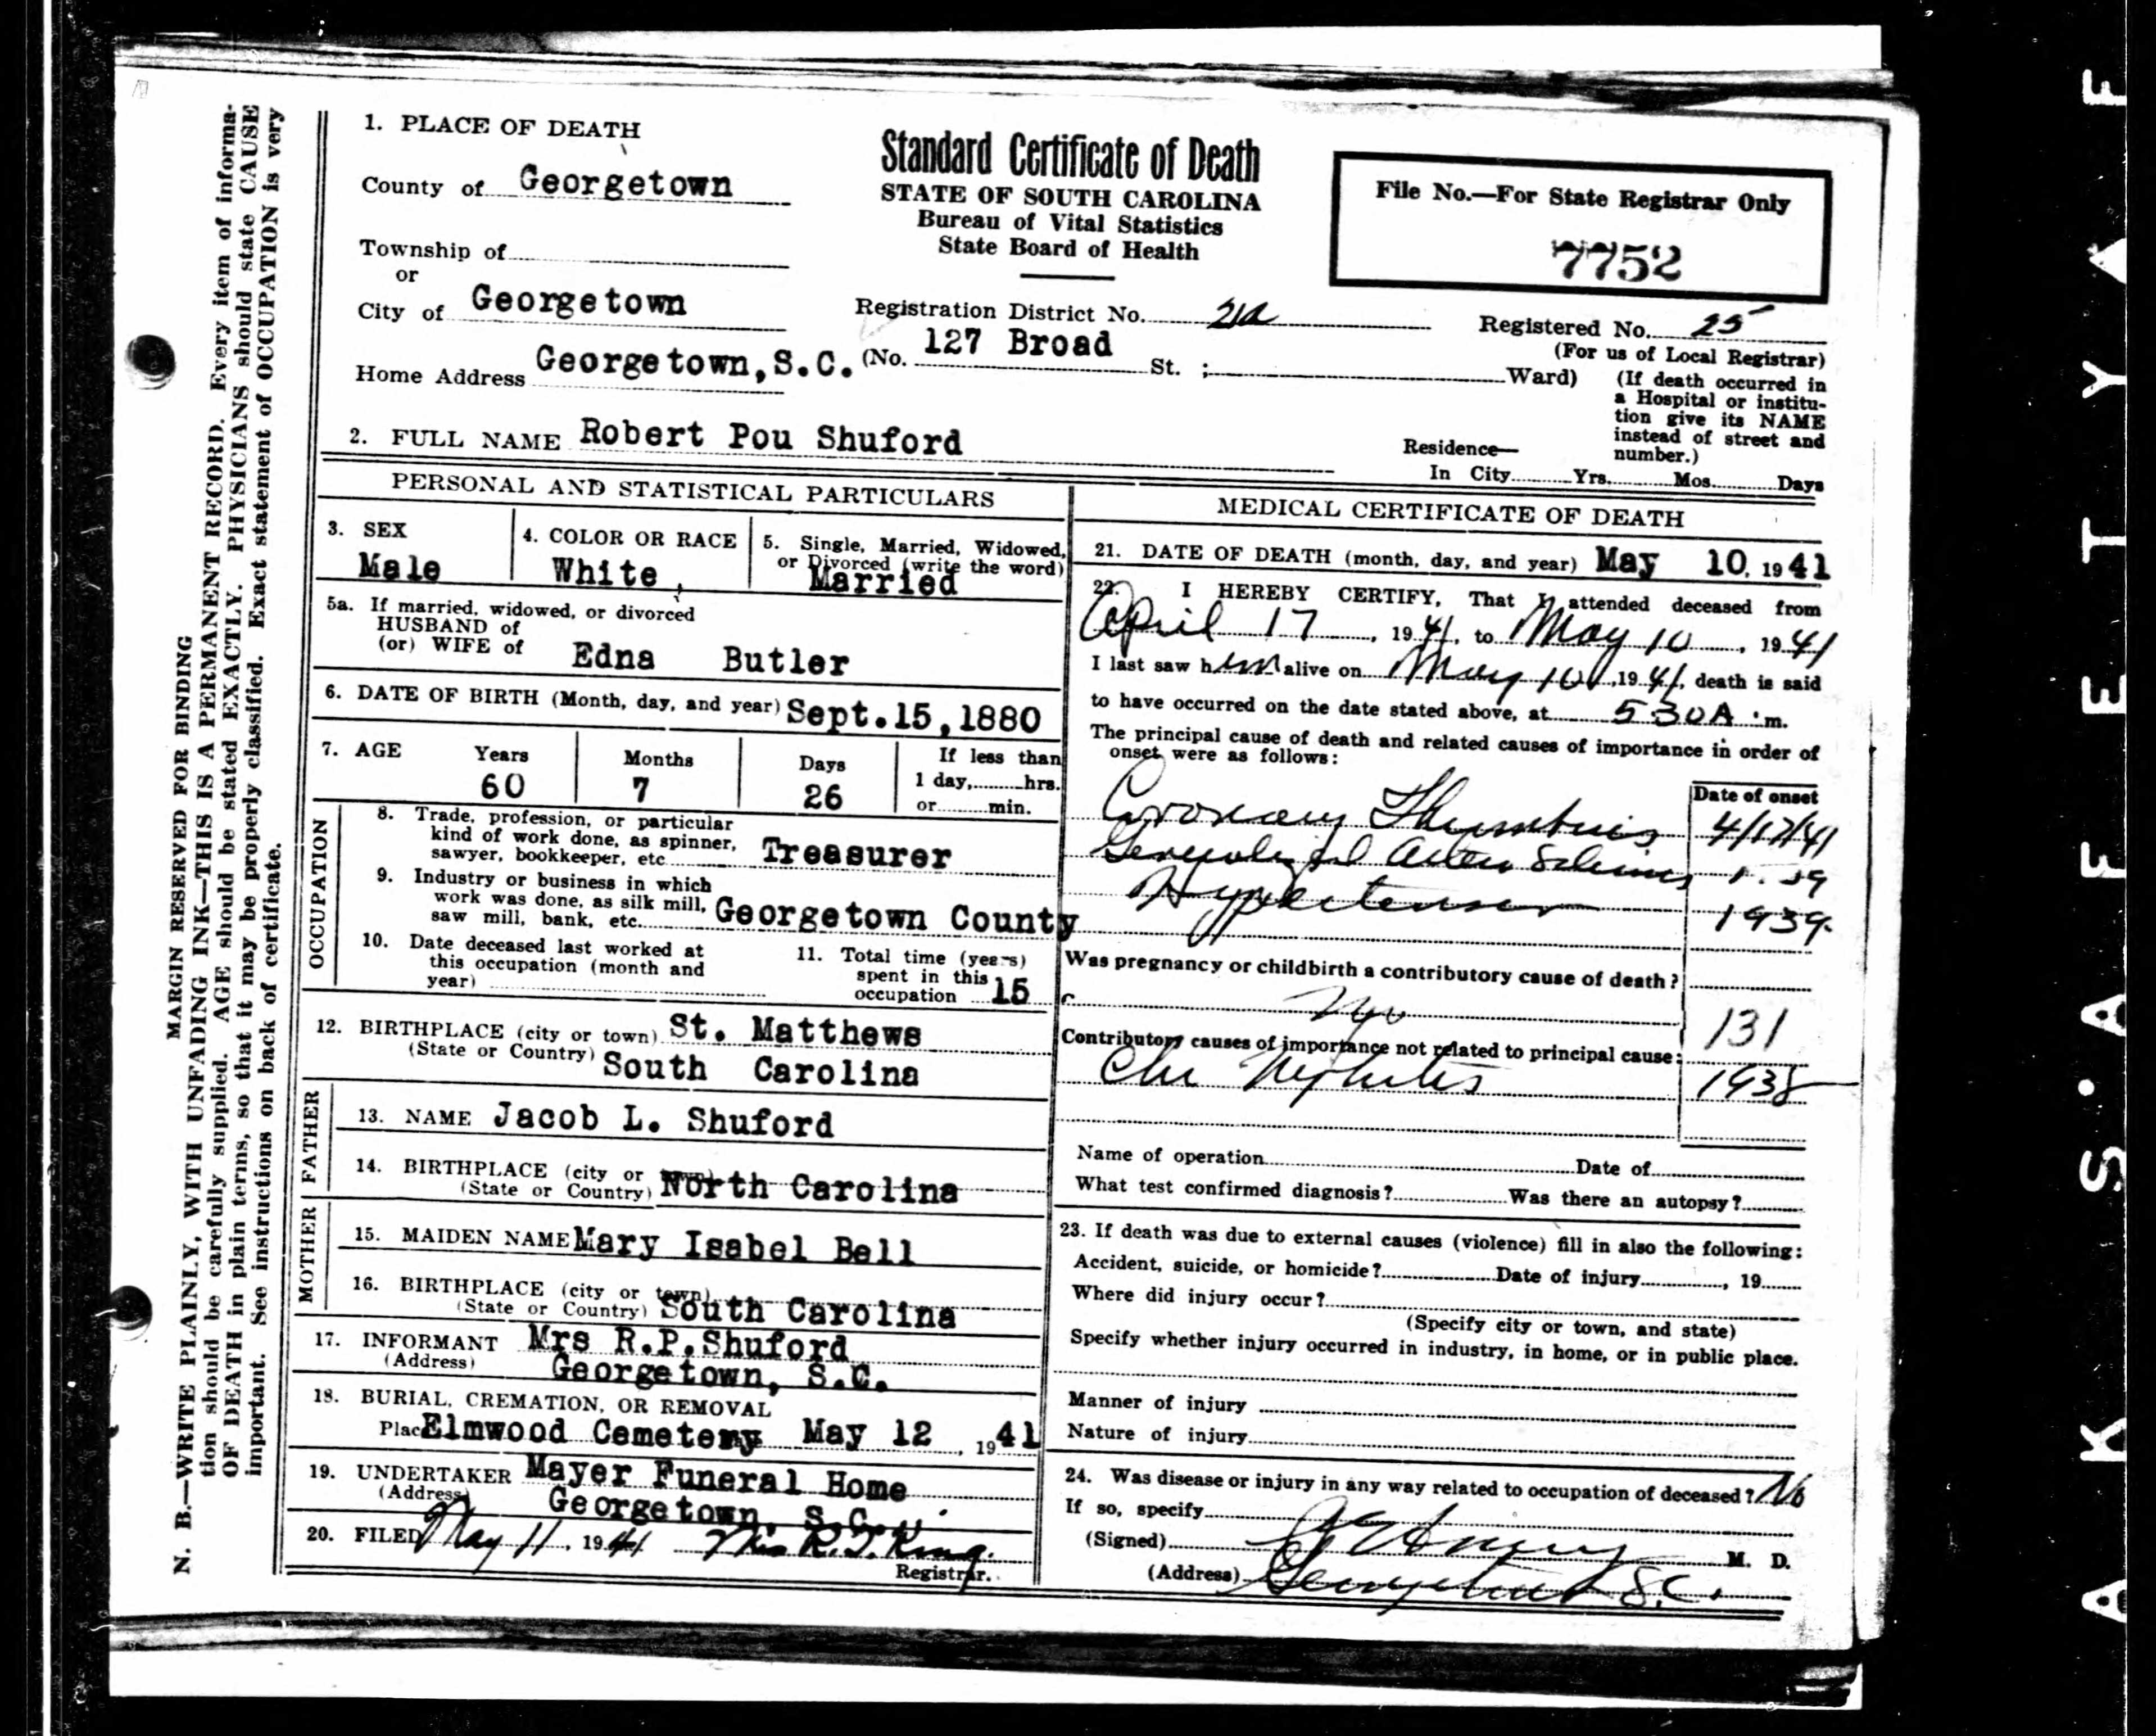 MARGIN RESERVED FOR BINDING
N. B.—WRITE PLAINLY, WITH UNFADING INK—THIS IS A PERMANENT RECORD. Every item of informa-
tion should be carefully supplied. AGE should be stated EXACTLY. PHYSICIANS should state CAUSE
OF DEATH in plain terms, so that it may be properly classified. Exact statement of OCCUPATION is very
important. See instructions on back of certificate.
1. PLACE OF DEATH
County of Georgetown
Township of
or
City of Georgetown
Home Address Georgetown, S.C. (No. 127 Broad St. ; Ward)
Standard Certificate of Death
STATE OF SOUTH CAROLINA
Bureau of Vital Statistics
State Board of Health
Registration District No. 21a
File No.—For State Registrar Only
7752
Registered No. 25
(For us of Local Registrar)
(If death occurred in
a Hospital or institu-
tion give its NAME
instead of street and
number.)
2. FULL NAME Robert Pou Shuford
Residence—
In City Yrs. Mos. Days
PERSONAL AND STATISTICAL PARTICULARS
3. SEX
Male
4. COLOR OR RACE
White
5. Single, Married, Widowed,
or Divorced (write the word)
Married
5a. If married, widowed, or divorced
HUSBAND of
(or) WIFE of Edna Butler
6. DATE OF BIRTH (Month, day, and year) Sept.15,1880
7. AGE Years Months Days If less than
60 7 26 1 day, hrs.
or min.
OCCUPATION
8. Trade, profession, or particular
kind of work done, as spinner,
sawyer, bookkeeper, etc. Treasurer
9. Industry or business in which
work was done, as silk mill,
saw mill, bank, etc. Georgetown County
10. Date deceased last worked at
this occupation (month and
year)
11. Total time (years)
spent in this
occupation 15
12. BIRTHPLACE (city or town) St. Matthews
(State or Country) South Carolina
FATHER
13. NAME Jacob L. Shuford
14. BIRTHPLACE (city or town)
(State or Country) North Carolina
MOTHER
15. MAIDEN NAME Mary Isabel Bell
16. BIRTHPLACE (city or town)
(State or Country) South Carolina
17. INFORMANT Mrs R.P.Shuford
(Address) Georgetown, S.C.
18. BURIAL, CREMATION, OR REMOVAL
Plac Elmwood Cemetery May 12, 1941
19. UNDERTAKER Mayer Funeral Home
(Address) Georgetown, S.C.
20. FILED May 11, 1941 Mrs R. T. King.
Registrar.
MEDICAL CERTIFICATE OF DEATH
21. DATE OF DEATH (month, day, and year) May 10, 1941
22. I HEREBY CERTIFY, That I attended deceased from
April 17, 1941, to May 10, 1941
I last saw him alive on May 10, 1941, death is said
to have occurred on the date stated above, at 5 30 A m.
The principal cause of death and related causes of importance in order of
onset were as follows:
Date of onset
Coronary Thrombosis 4/17/41
Generalized Arterio Sclerosis
Hypertension 1939.
Was pregnancy or childbirth a contributory cause of death?
No
131
Contributory causes of importance not related to principal cause:
Chr Nephritis 1938
Name of operation Date of
What test confirmed diagnosis? Was there an autopsy?
23. If death was due to external causes (violence) fill in also the following:
Accident, suicide, or homicide? Date of injury , 19
Where did injury occur?
(Specify city or town, and state)
Specify whether injury occurred in industry, in home, or in public place.
Manner of injury
Nature of injury
24. Was disease or injury in any way related to occupation of deceased? No
If so, specify
(Signed) M. D.
(Address) Georgetown S.C.
A K S'A F E T Y A F